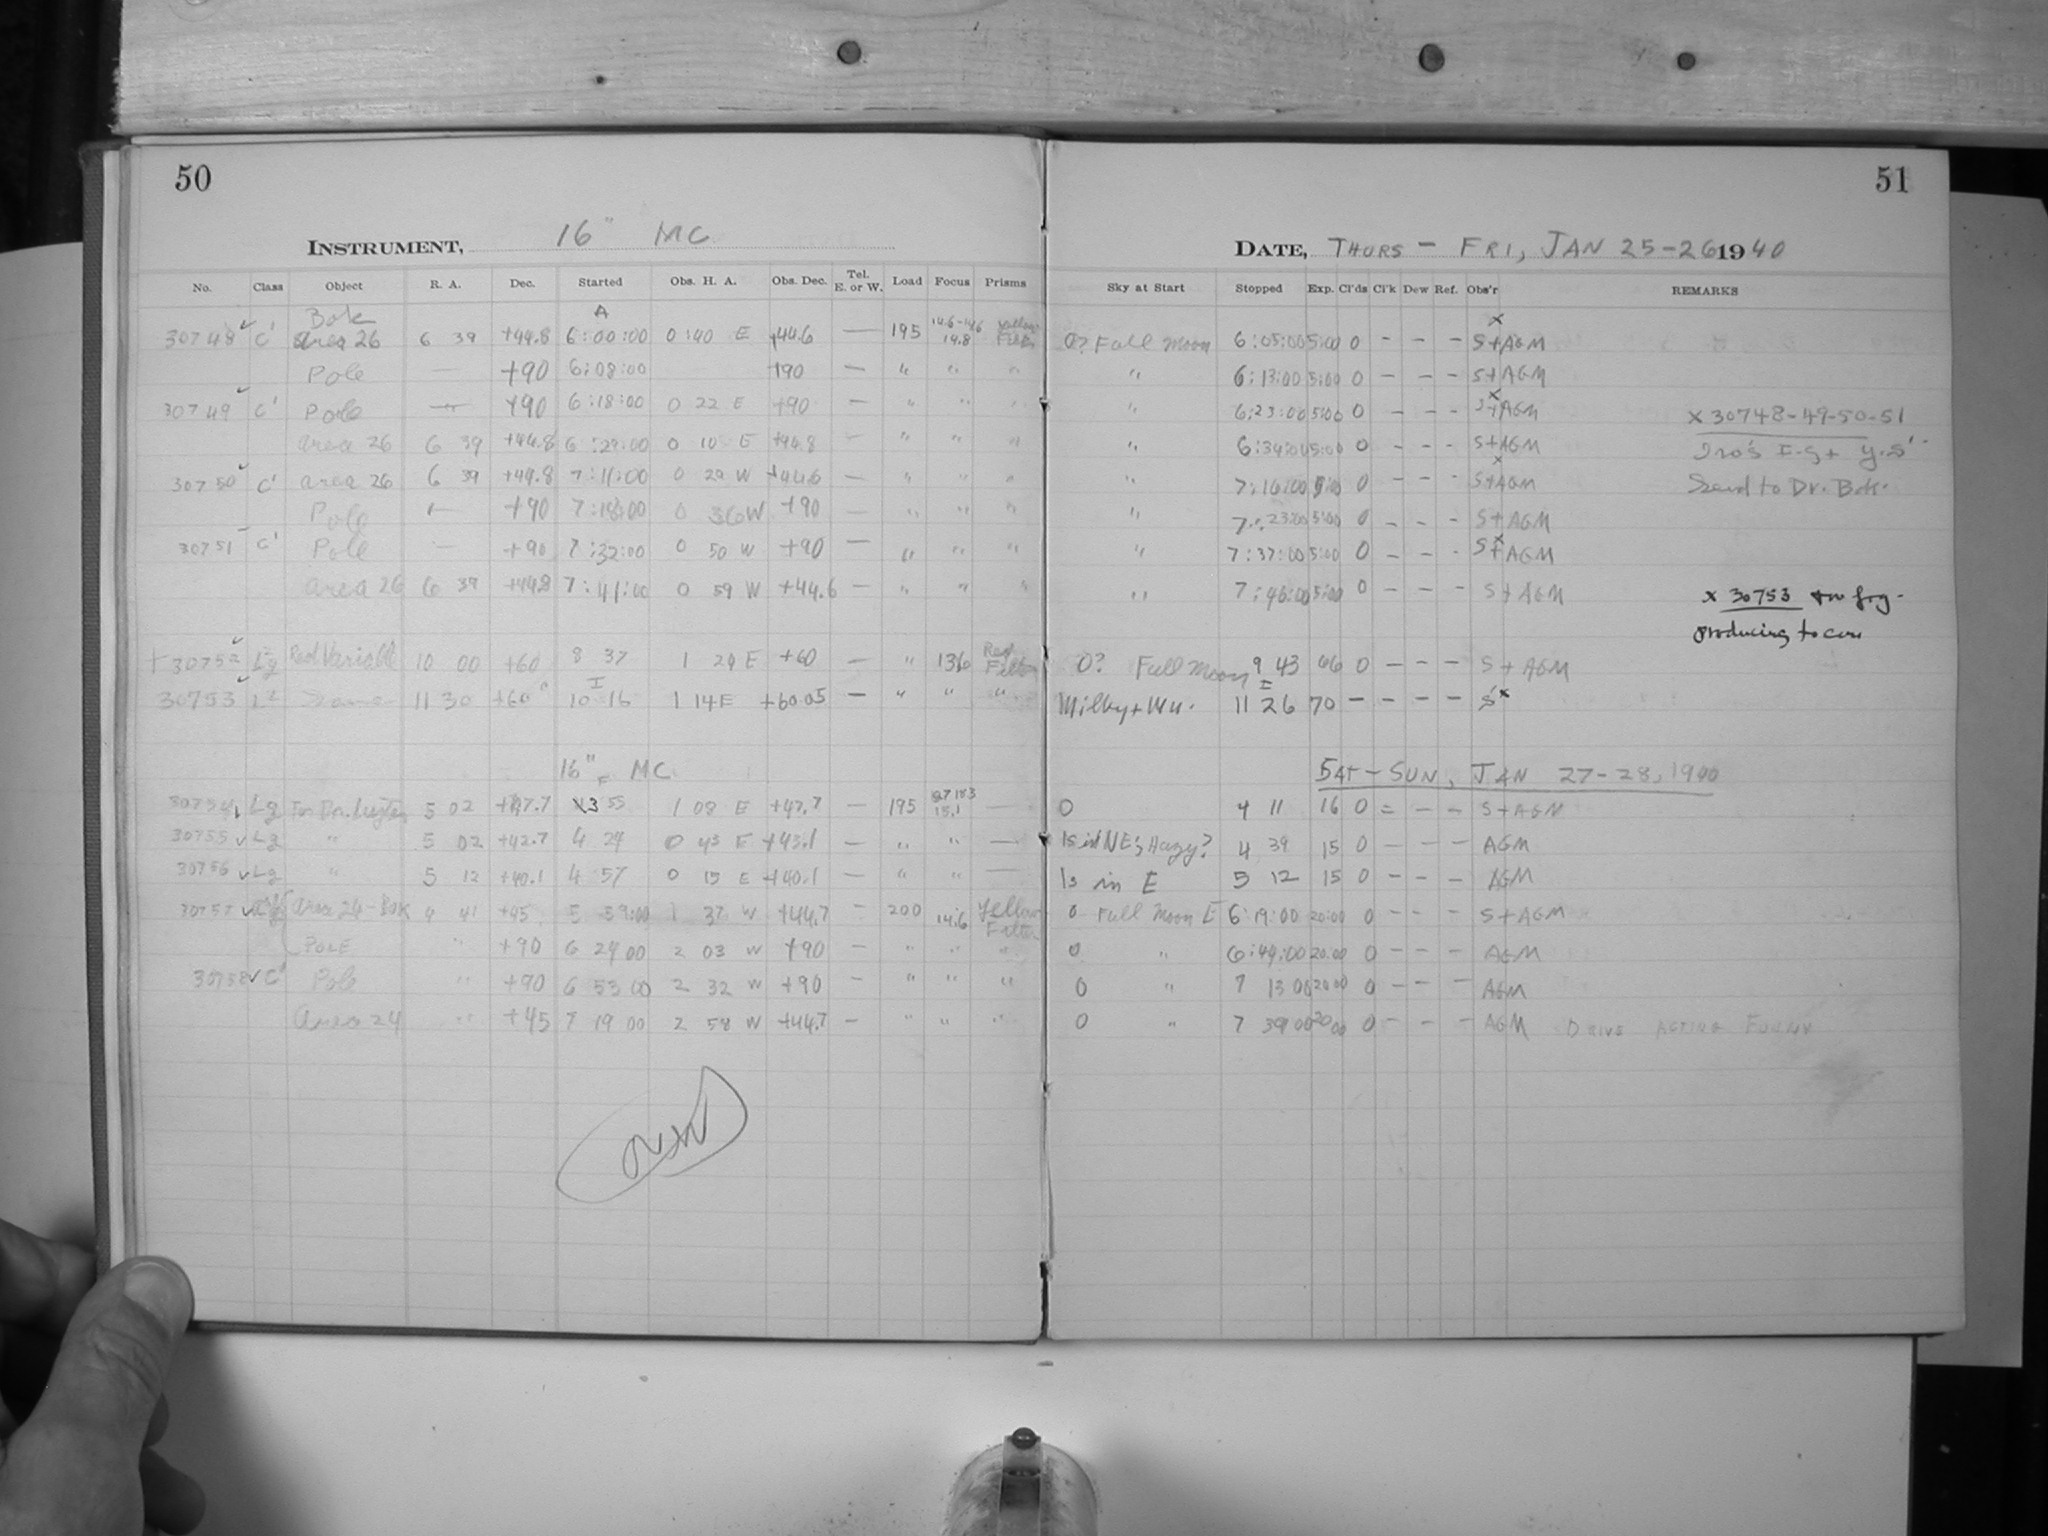 50
INSTRUMENT, 16" MC
No. Class Object R. A. Dec. Started Obs. H. A. Obs. Dec. Tel. E. or W. Load Focus Prisms
A
Bok
30748 C' Area 26 6 39 +44.8 6:00:00 0:40 E +44.6 — 195 14.8 Yellow Filter
Pole — +90 6:08:00 +90 — " " "
30749 C' Pole — +90 6:18:00 0 22 E +90 — " " "
Area 26 6 39 +44.8 6:29:00 0 10 E +44.8 — " " "
30750 C' Area 26 6 39 +44.8 7:11:00 0 29 W +44.6 — " " "
Pole — +90 7:18:00 0 36 W +90 — " " "
30751 C' Pole — +90 7:32:00 0 50 W +90 — " " "
Area 26 6 39 +44.8 7:41:00 0 59 W +44.6 — " " "
+ 30752 Red Variable 10 00 +60 8 37 1 29 E +60 — " 136 Red Filter
30753 L2 11 30 +60 10 16 1 14 E +60.05 — " " "
16" MC
30754 Lg For Dr. Luyten 5 02 +47.7 3 55 1 08 E +47.7 — 195 15.1 —
30755 ✓ Lg " 5 02 +42.7 4 24 0 43 E +43.1 — " " —
30756 ✓ Lg " 5 12 +40.1 4 57 0 15 E +40.1 — " " —
30757 ✓ Area 24-Bok 4 41 +45 5 59:00 1 37 W +44.7 — 200 14.6 Yellow Filter
POLE " +90 6 24 00 2 03 W +90 — " " "
30758 ✓ C' Pole " +90 6 53 00 2 32 W +90 — " " "
Area 24 " +45 7 19 00 2 58 W +44.7 — " " "
51
DATE, THURS — FRI, JAN 25-26 1940
Sky at Start Stopped Exp. Cl'ds Cl'k Dew Ref. Obs'r REMARKS
0? Full Moon 6:05:00 5:00 0 - - - S+AGM
" 6:13:00 5:00 0 - - - S+AGM
" 6:23:00 5:00 0 - - - S+AGM x 30748-49-50-51
" 6:34:00 5:00 0 - - - S+AGM
" 7:16:00 5:00 0 - - - S+AGM Send to Dr. Bok.
" 7:23:00 5:00 0 - - - S+AGM
" 7:37:00 5:00 0 - - - S+AGM
" 7:46:00 5:00 0 - - - S+AGM x 30753
producing to
0? Full Moon 9 43 66 0 - - - S+AGM
Milky + 11 26 70 - - - - S x
SAT — SUN, JAN 27-28, 1940
0 4 11 16 0 = - - S+AGM
Is in NE; Hazy? 4 39 15 0 - - - AGM
Is in E 5 12 15 0 - - - AGM
0 Full Moon E 6:19:00 20:00 0 - - - S+AGM
0 " 6:44:00 20:00 0 - - - AGM
0 " 7 13 00 20 00 0 - - - AGM
0 " 7 39 00 20 00 0 - - - AGM DRIVE ACTING FUNNY